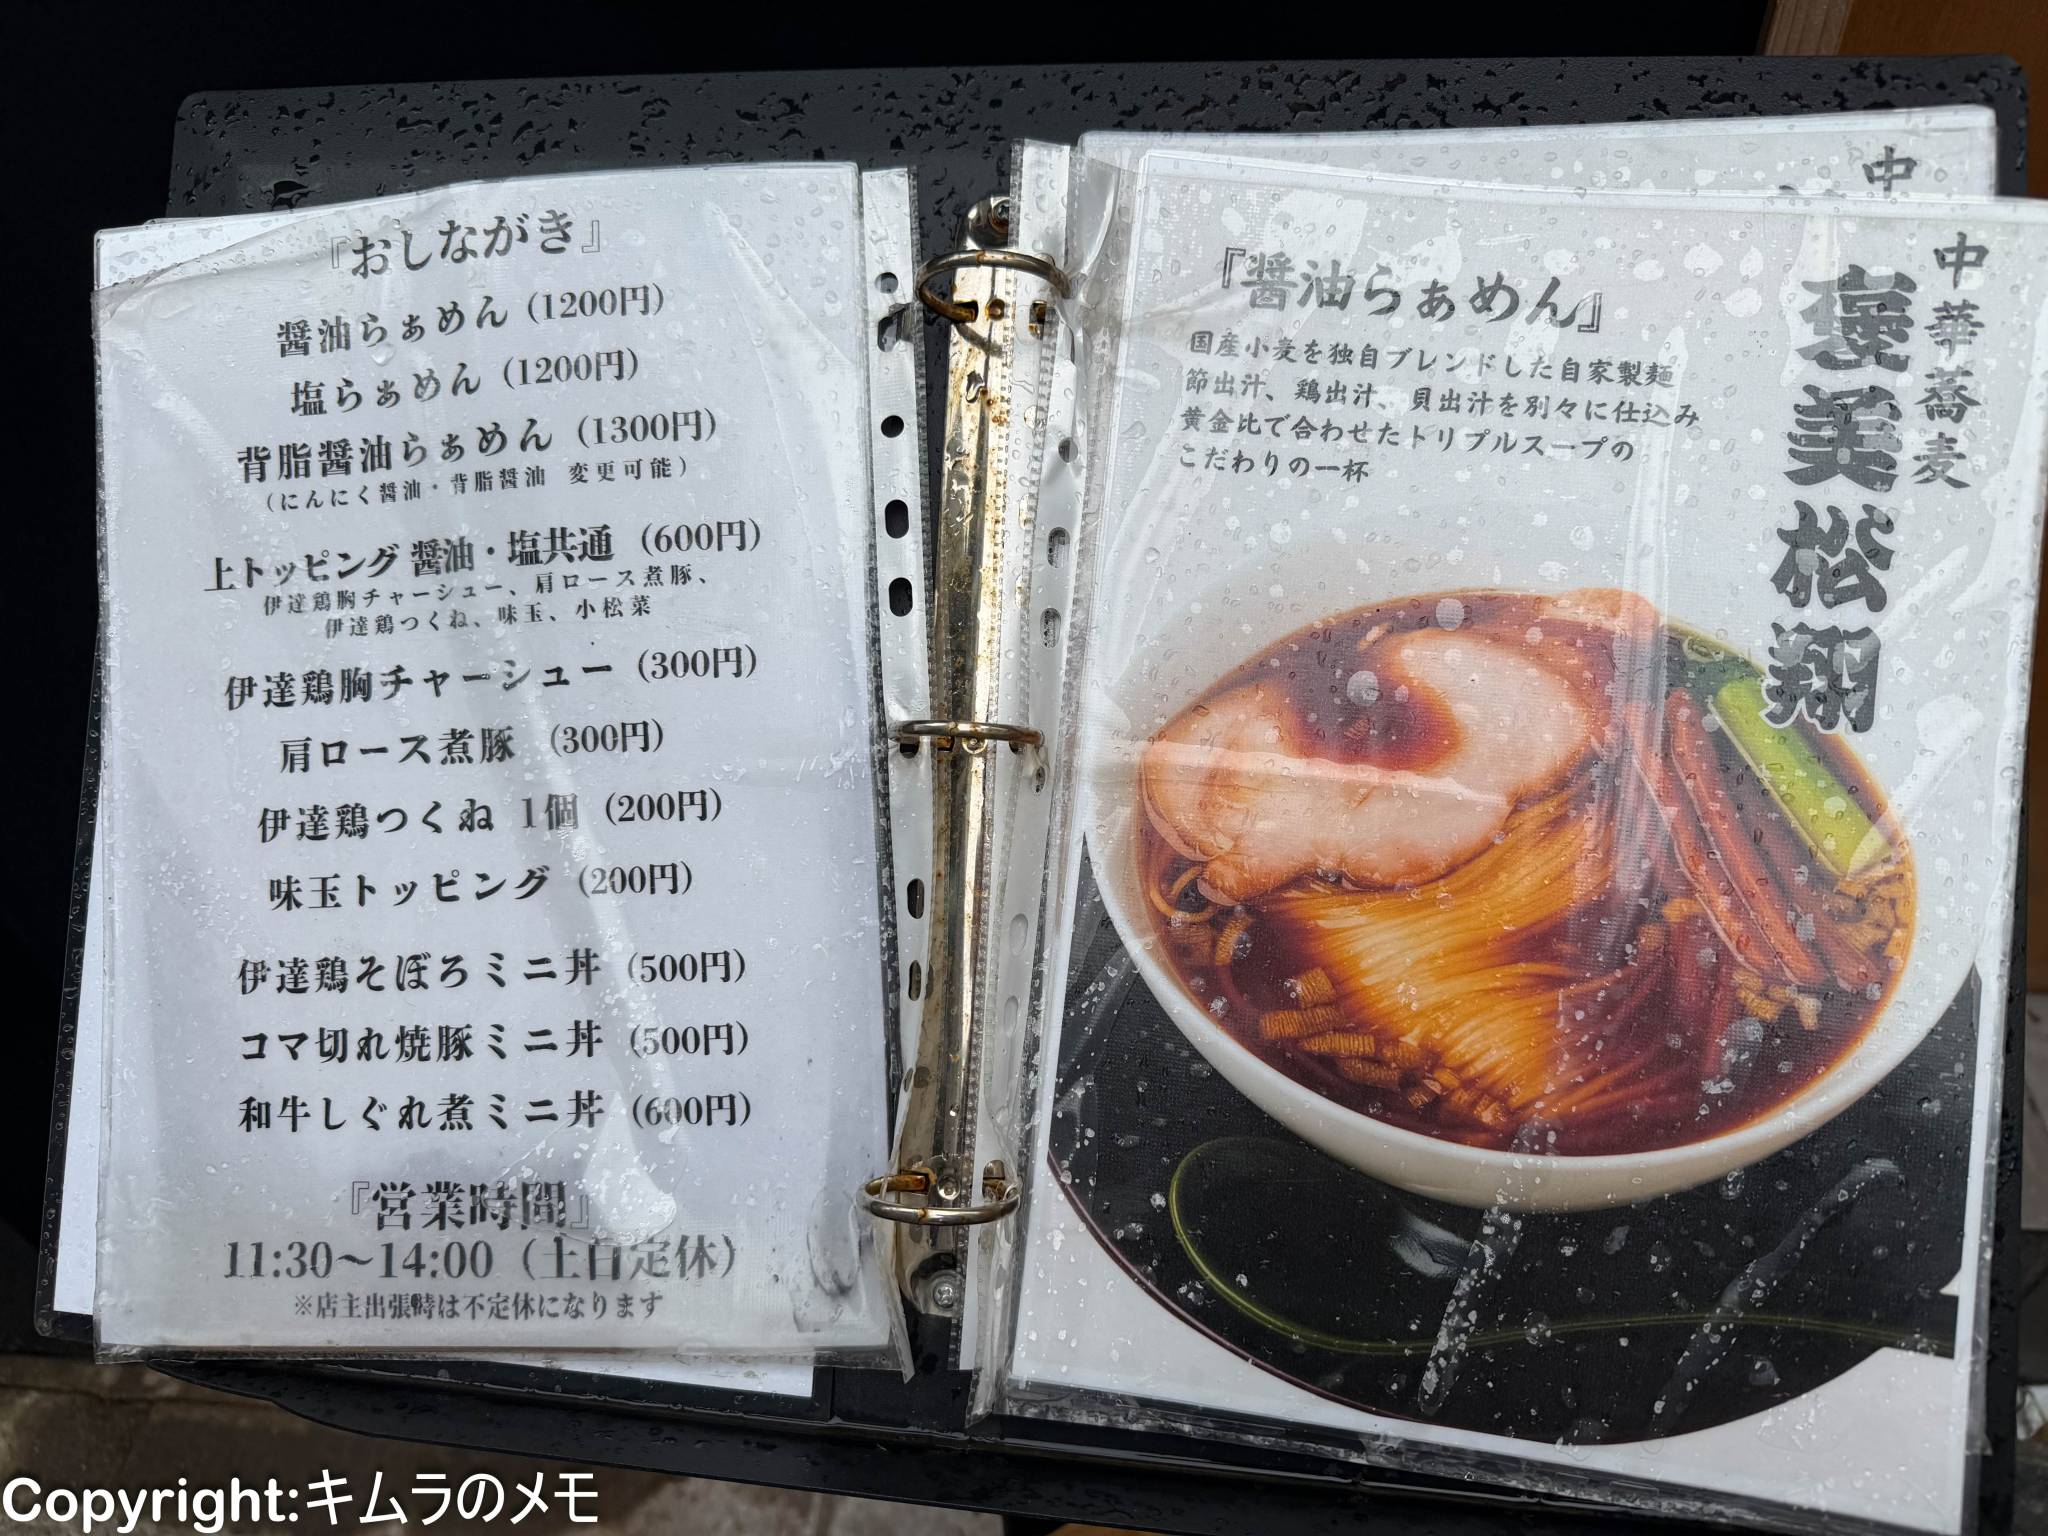 『おしながき』
醤油らぁめん (1200円)
塩らぁめん (1200円)
背脂醤油らぁめん (1300円)
(にんにく醤油・背脂醤油 変更可能)
上トッピング 醤油・塩共通 (600円)
伊達鶏胸チャーシュー、肩ロース煮豚、
伊達鶏つくね、味玉、小松菜
伊達鶏胸チャーシュー (300円)
肩ロース煮豚 (300円)
伊達鶏つくね 1個 (200円)
味玉トッピング (200円)
伊達鶏そぼろミニ丼 (500円)
コマ切れ焼豚ミニ丼 (500円)
和牛しぐれ煮ミニ丼 (600円)
『営業時間』
11:30～14:00 (土日定休)
※店主出張時は不定休になります
中
中華蕎麦
褒美松翔
『醤油らぁめん』
国産小麦を独自ブレンドした自家製麺
節出汁、鶏出汁、貝出汁を別々に仕込み
黄金比で合わせたトリプルスープの
こだわりの一杯
Copyright:キムラのメモ